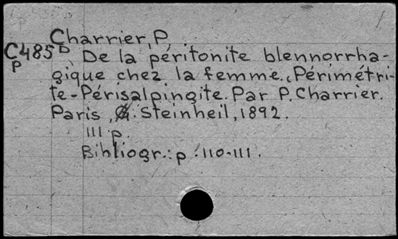 Charrier, P
C485p
D
De la péritonite blennorrha-
gique chez la femme. (Périmétri-
te-Périsalpingite. Par P. Charrier.
Paris, G. Steinheil, 1892.
111 p.
Bibliogr.: p. 110-111.